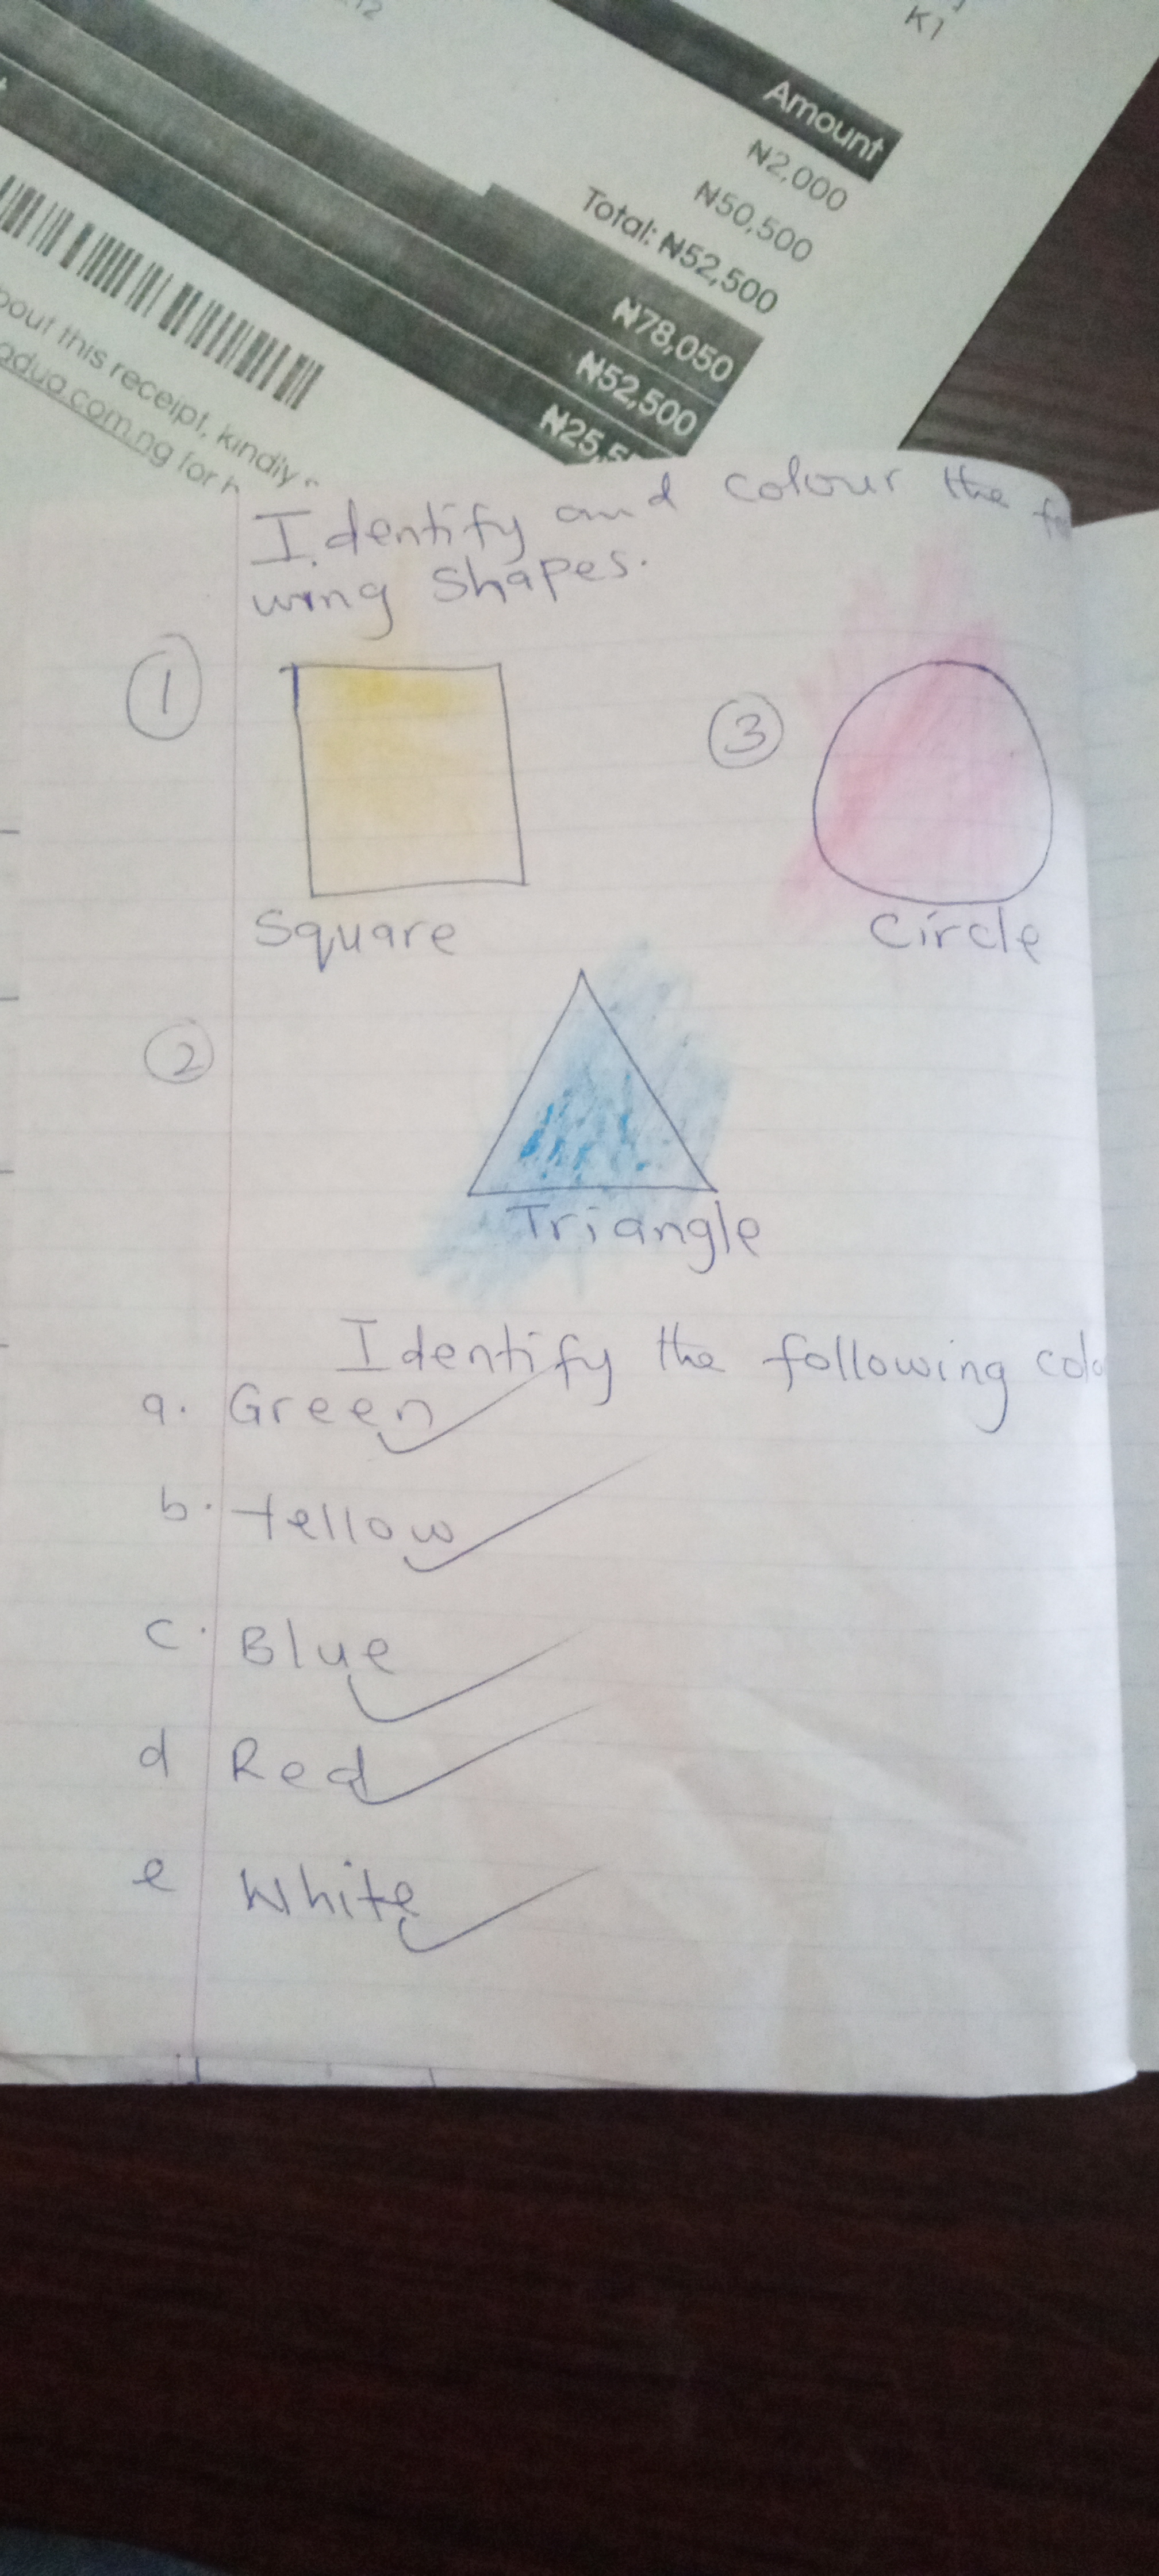 K1
Amount
₦2,000
₦50,500
Total: ₦52,500
₦78,050
₦52,500
this receipt, kindly
for
Identify and colour the
wing Shapes.
1
3
Square
Circle
2
Triangle
Identify the following
a. Green
b. Yellow
c. Blue
d Red
e White